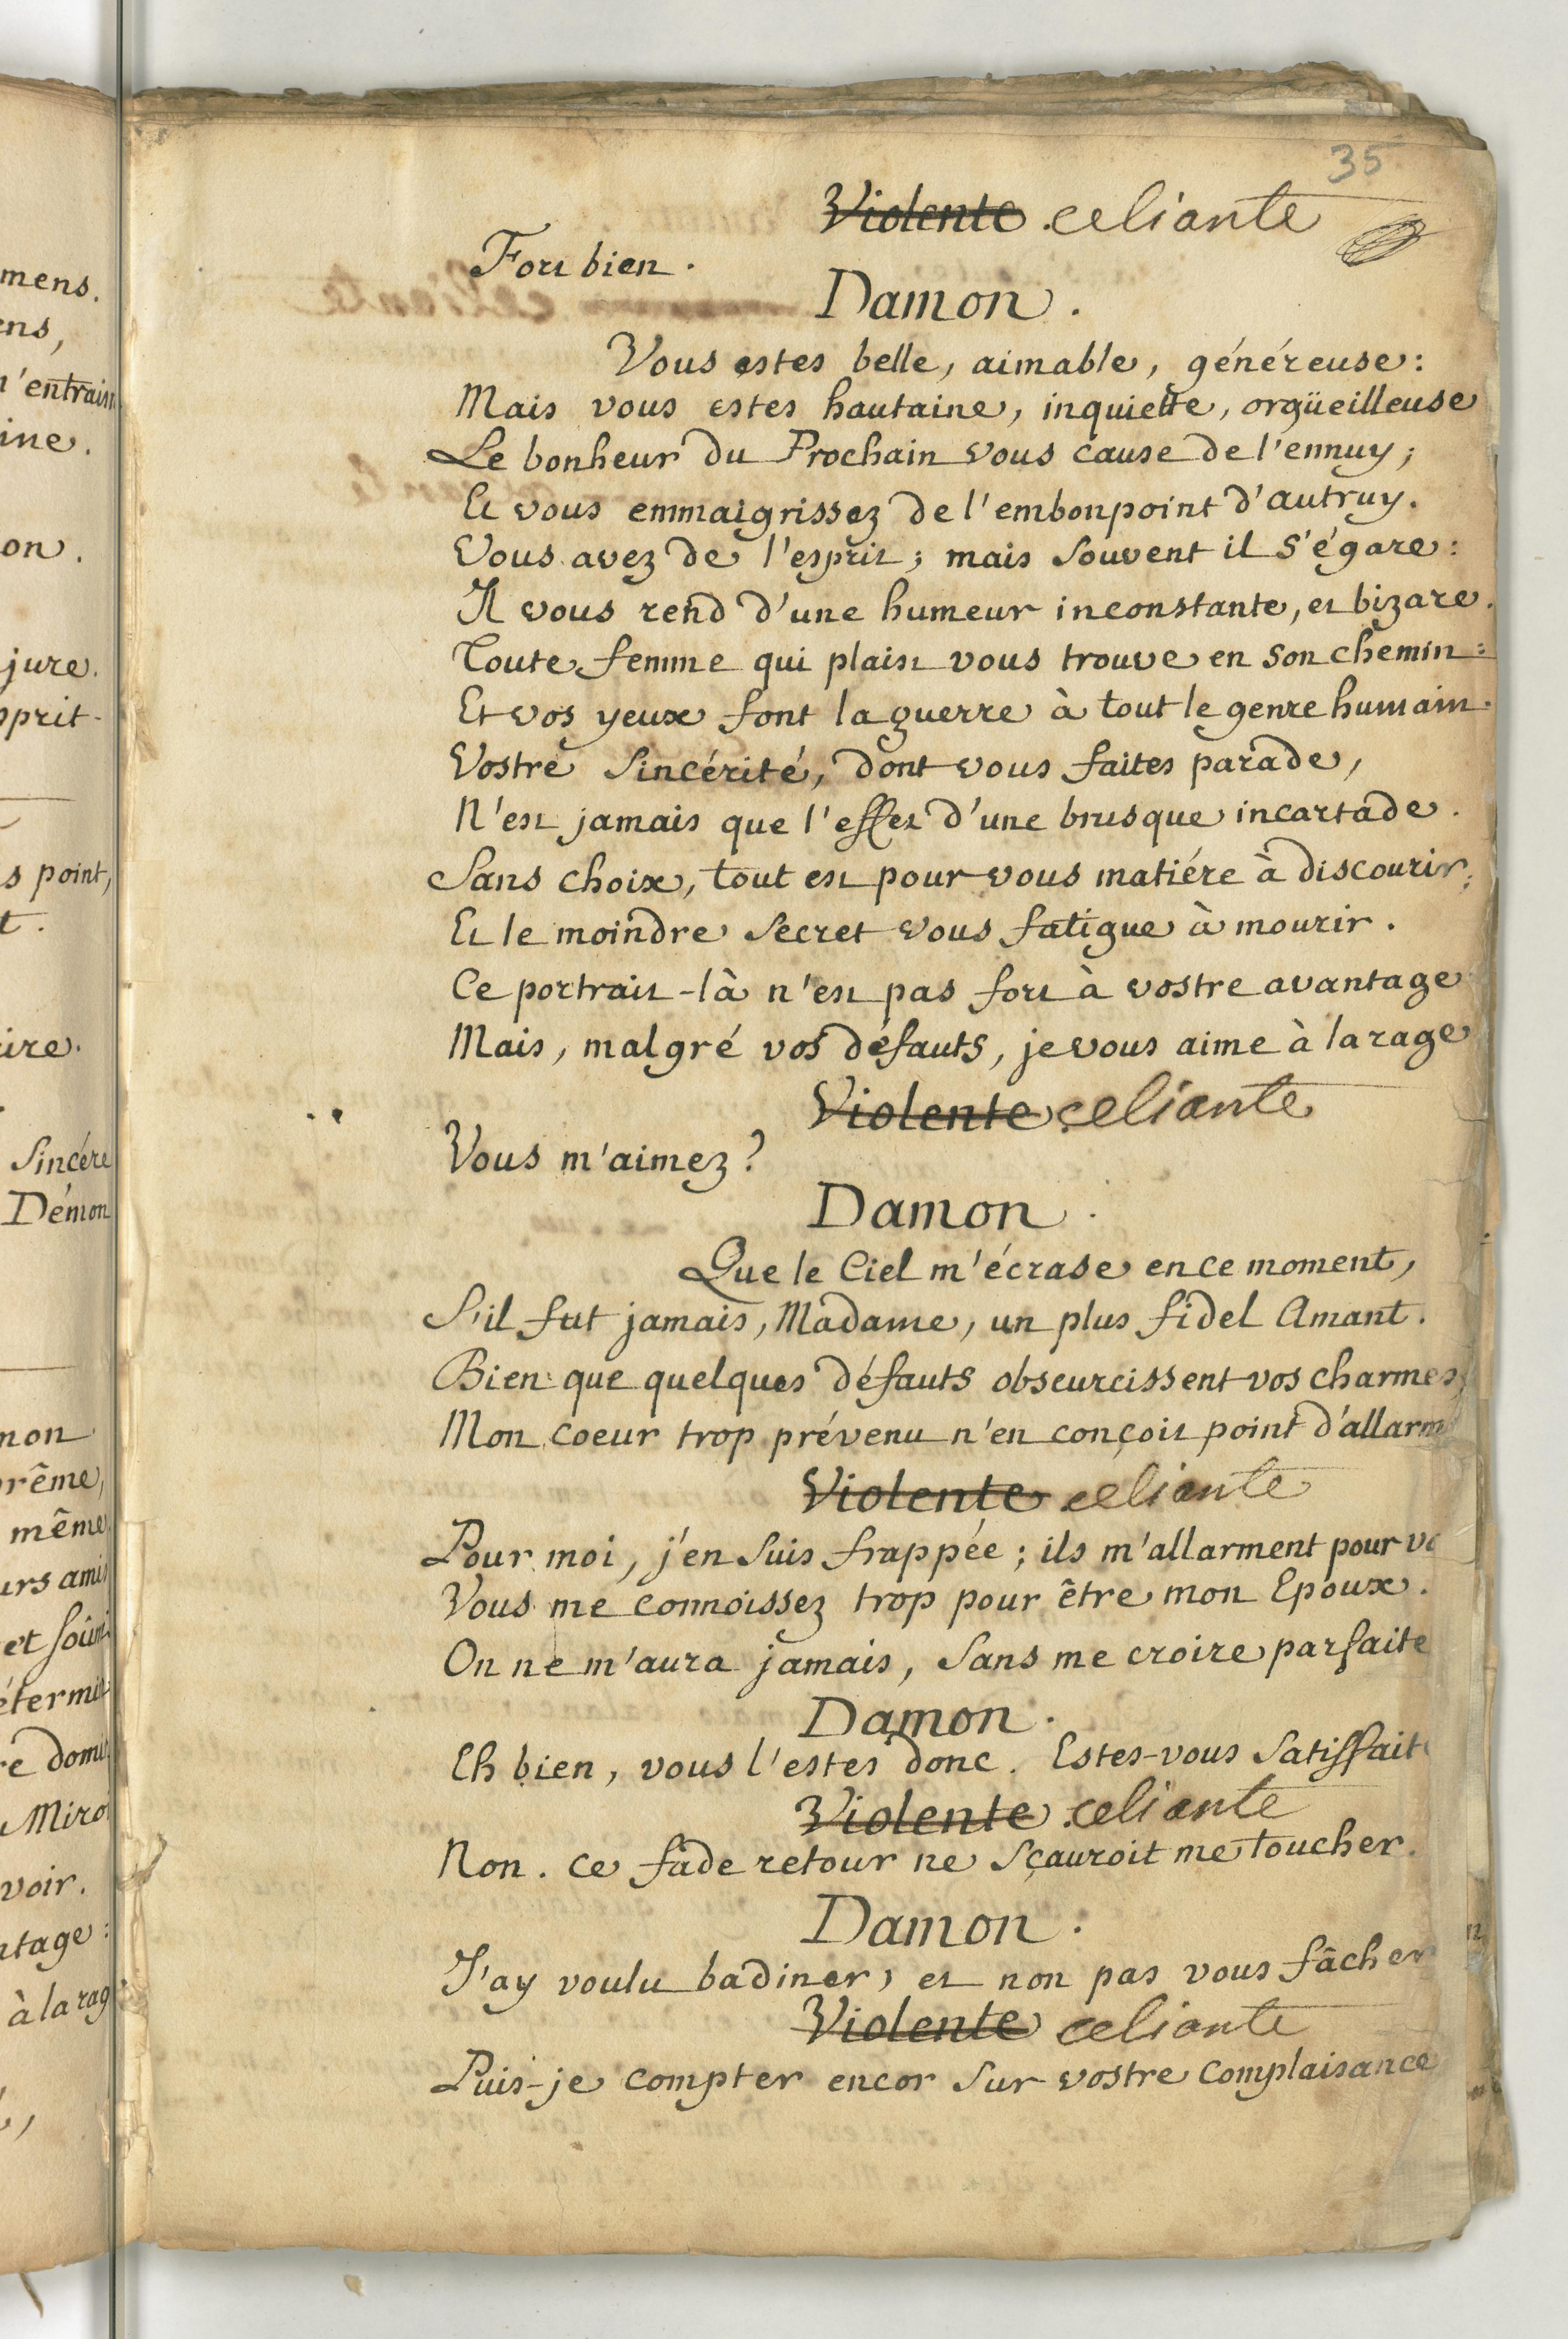 mens.
ens,
n'entrain
ine.
on.
jure.
sprit.
s point,
t.
ire.
Sincére
Démon
mon
prême,
même
urs amis
et soûm
étermi
re domi
Miro
voir.
ntage:
à la rag
35
Violente. celiante
Fort bien.
Damon.
Vous estes belle, aimable, généreuse:
Mais vous estes hautaine, inquiette, orgüeilleuse
Le bonheur du Prochain vous cause de l'ennuy;
Et vous emmaigrissez de l'embonpoint d'autruy.
Vous avez de l'esprit; mais souvent il s'égare:
Il vous rend d'une humeur inconstante, et bizare.
Toute femme qui plaist vous trouve en son chemin:
Et vos yeux font la guerre à tout le genre humain.
Vostre sincérité, dont vous faites parade,
N'est jamais que l'effet d'une brusque incartade.
Sans choix, tout est pour vous matiére à discourir;
Et le moindre secret vous fatigue à mourir.
Ce portrait-là n'est pas fort à vostre avantage
Mais, malgré vos défauts, je vous aime à la rage
Violente celiante
Vous m'aimez?
Damon.
Que le Ciel m'écrase en ce moment,
S'il fut jamais, Madame, un plus fidel Amant.
Bien que quelques défauts obscurcissent vos charmes,
Mon coeur trop prévenu n'en conçoit point d'allarm
Violente celiante
Pour moi, j'en suis frappée; ils m'allarment pour vo
Vous me connoissez trop pour être mon Epoux.
On ne m'aura jamais, sans me croire parfaite
Damon.
Eh bien, vous l'estes donc. Estes-vous satisfaite
Violente. celiante
Non. Ce fade retour ne sçauroit me toucher.
Damon.
J'ay voulu badiner, et non pas vous fâcher
Violente celiante
Puis-je compter encor sur vostre complaisance